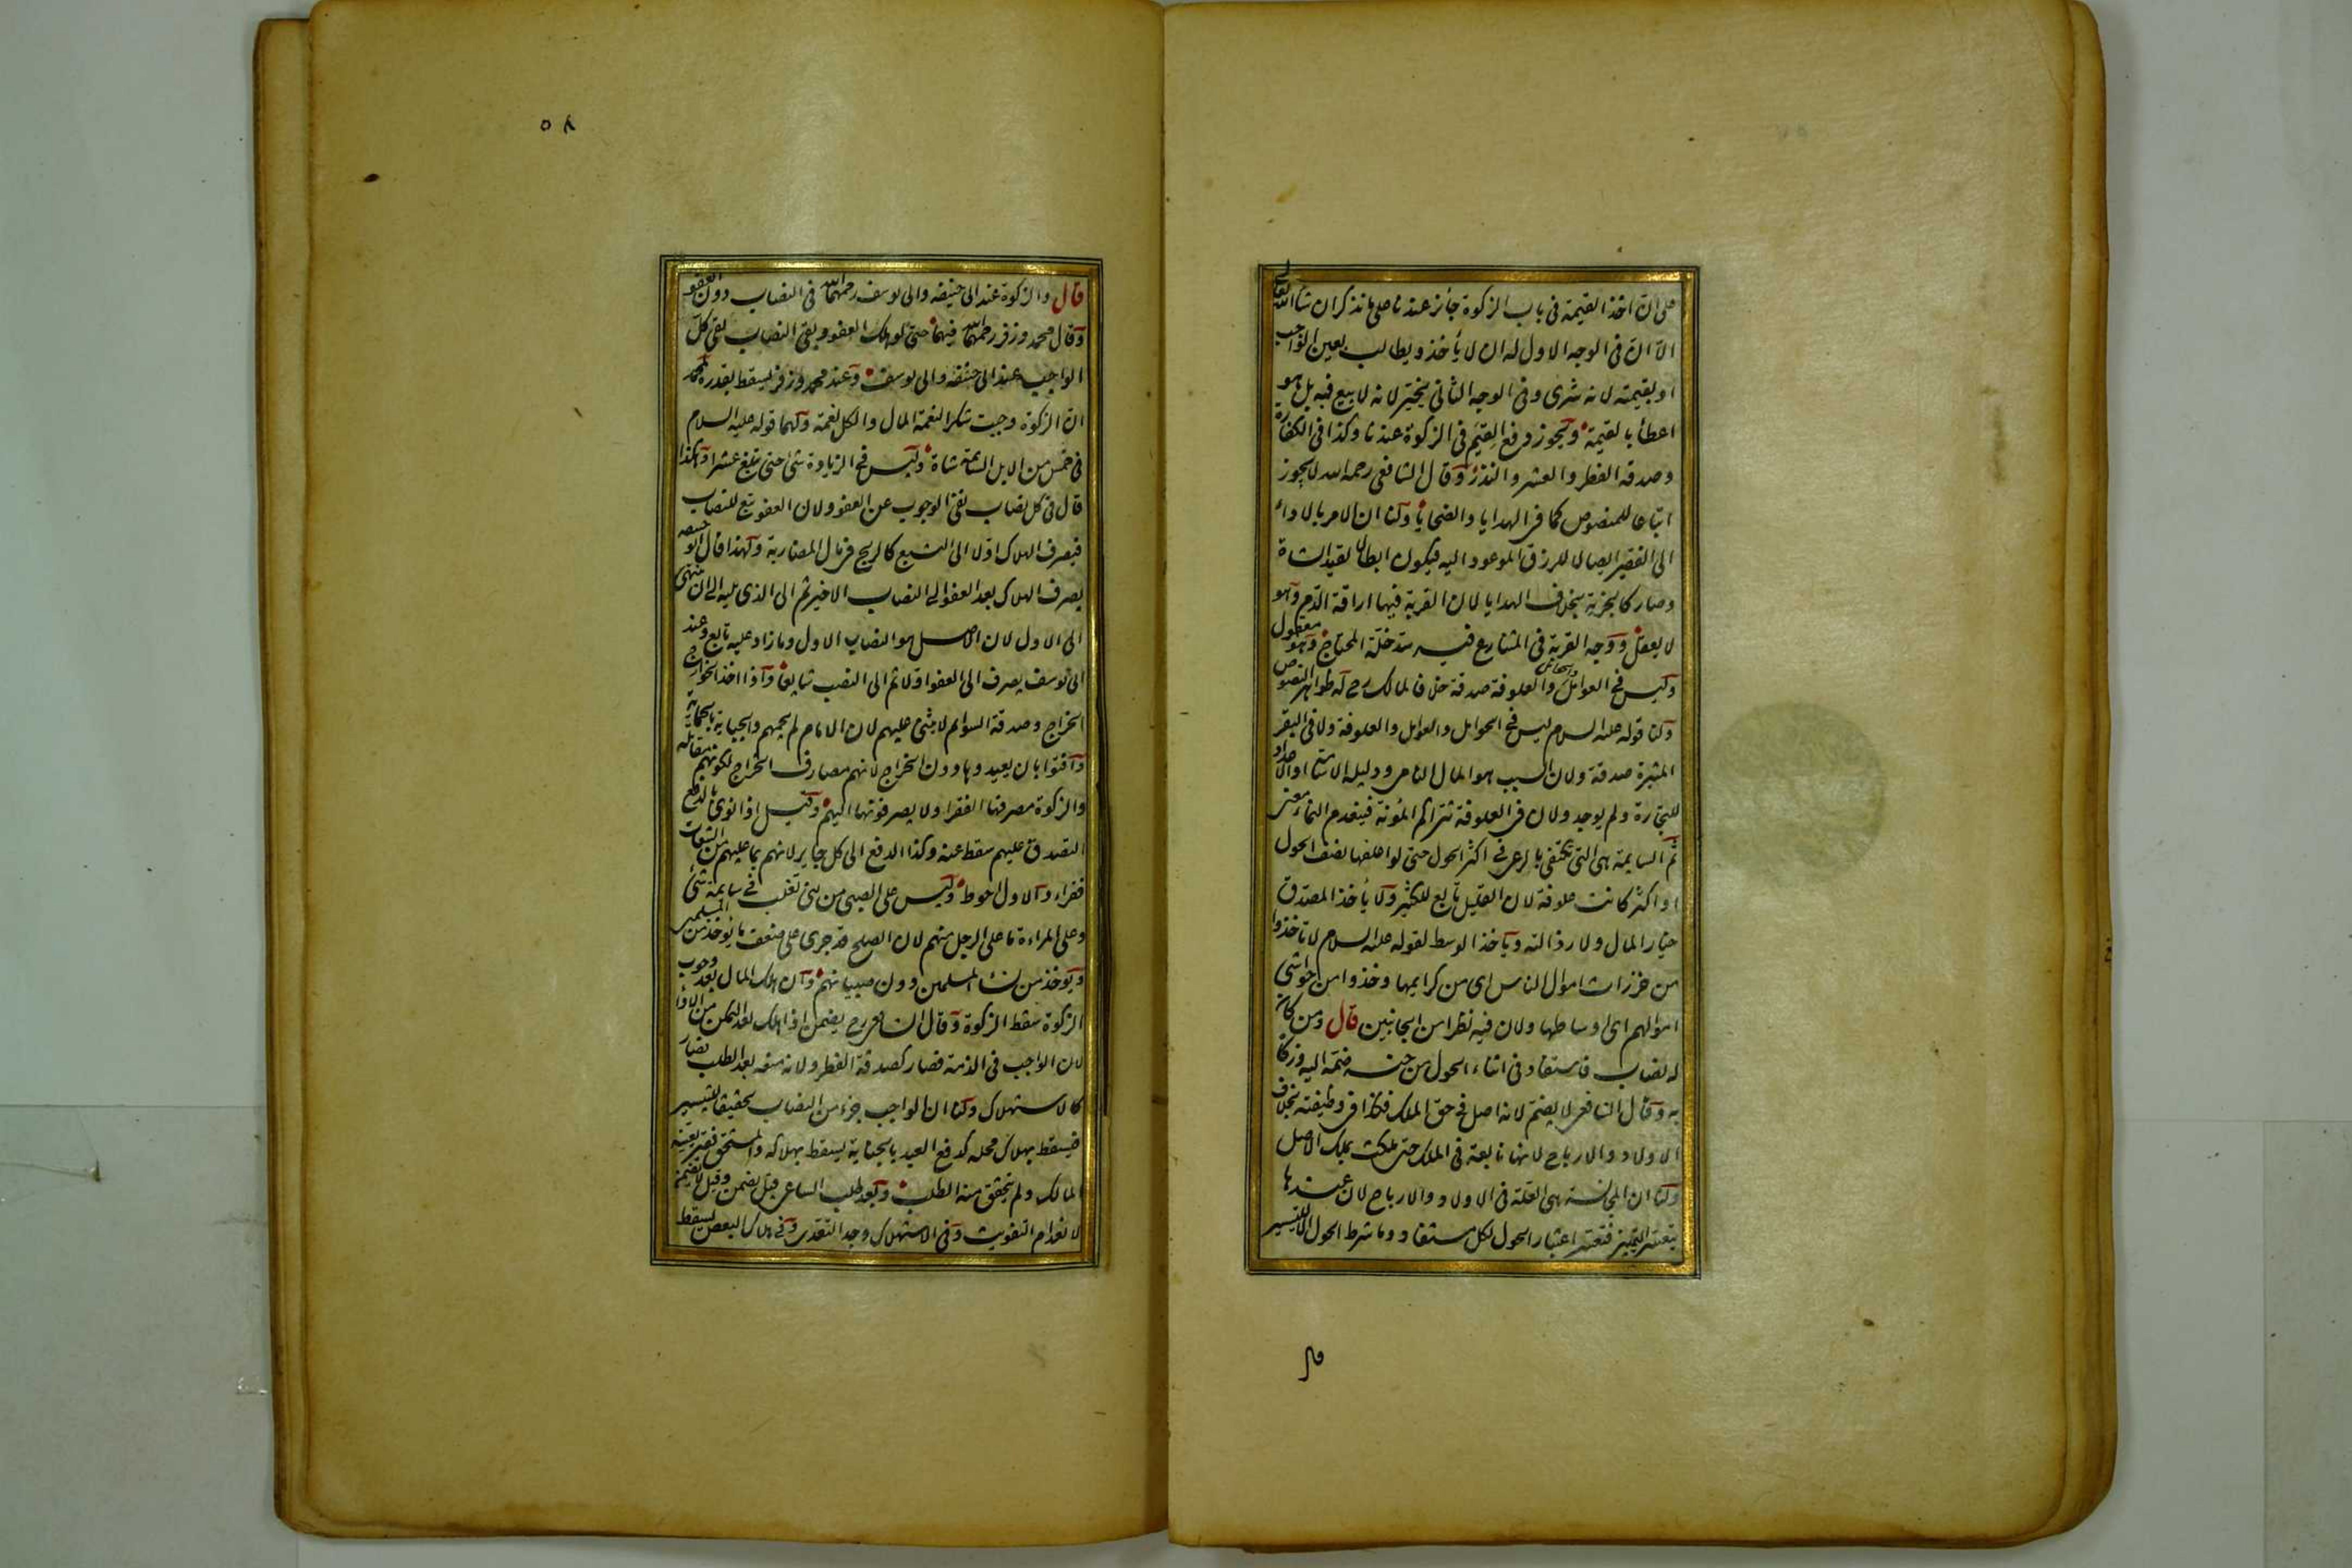 على ان اخذ القيمة في باب الزكوة جائز عندنا على ما نذكر ان شاء الله تعالى
الا ان في الوجه الاول له ان لا يأخذ ويطالب بعين الواجب
او بقيمته لانه شرى وفي الوجه الثاني يخير لانه لا بيع فيه بل هو
اعطأ بالقيمة ويجوز دفع القيم في الزكوة عندنا وكذا في الكفارة
وصدقة الفطر والعشر والنذر وقال الشافعي رحمه الله لا يجوز
اتباعا للمنصوص كما في الهدايا والضحايا ولنا ان الامر بالاداء
الى الفقير ايصالا للرزق الموعود اليه فيكون ابطالا لقيد الشاة
وصار كالجزية بخلاف الهدايا لان القربة فيها اراقة الدم وهو
لا يعقل ووجه القربة في المتنازع فيه سد خلة المحتاج وهو معقول
وليس في العوامل والحوامل والعلوفة صدقة خلافا لمالك رح له ظواهر النصوص
ولنا قوله عليه السلام ليس في الحوامل والعوامل والعلوفة ولا في البقر
المثيرة صدقة ولان السبب هو المال النامي ودليله الاسامة او الاعداد
للتجارة ولم يوجد ولان في العلوفة تتراكم المؤنة فينعدم النماء معنى
ثم السايمة هي التي تكتفى بالرعى في اكثر الحول حتى لو اعلفها نصف الحول
او اكثر كانت علوفة لان القليل تابع للكثير ولا يأخذ المصدق
خيار المال ولا رذالته ويأخذ الوسط لقوله عليه السلام لا تأخذوا
من حزرات اموال الناس اى من كرايمها وخذوا من حواشى
اموالهم اى اوساطها ولان فيه نظرا من الجانبين قال ومن كان
له نصاب فاستفاد في اثناء الحول من جنسه ضمه اليه وزكاه
به وقال الشافعى لا يضم لانه اصل في حق الملك فكذا في وظيفته بخلاف
الاولاد والارباح لانها تابعة في الملك حتى ملكت بملك الاصل
ولنا ان المجانسة هي العلة في الاولاد والارباح لان عندها
يتعسر التمييز فتعسر اعتبار الحول لكل مستفاد وما شرط الحول الا للتيسير
قال
٥٨
قال والزكوة عند ابى حنيفة وابى يوسف رحمهما الله في النصاب دون العفو
وقال محمد وزفر رحمهما الله فيهما حتى لو هلك العفو وبقى النصاب بقى كل
الواجب عند ابى حنيفة وابى يوسف وعند محمد وزفر يسقط بقدره لمحمد
ان الزكوة وجبت شكرا لنعمة المال والكل نعمة ولهما قوله عليه السلام
في خمس من الابل السائمة شاة وليس في الزيادة شئ حتى تبلغ عشرا وهكذا
قال في كل نصاب نفى الوجوب عن العفو ولان العفو تبع للنصاب
فيصرف الهلاك اولا الى التبع كالربح في مال المضاربة ولهذا قال ابو حنيفة
يصرف الهلاك بعد العفو الى النصاب الاخير ثم الى الذى يليه الى ان ينتهى
الى الاول لان الاصل هو النصاب الاول وما زاد عليه تابع وعند
ابى يوسف يصرف الى العفو اولا ثم الى النصب شايعا واذا اخذ الخوارج
الخراج وصدقة السوائم لا يثنى عليهم لان الامام لم يحمهم والجباية بالحماية
وافتوا بان يعيدوها دون الخراج لانهم مصارف الخراج لكونهم مقاتلة
والزكوة مصرفها الفقراء ولا يصرفونها اليهم وقيل اذا نوى بالدفع
التصدق عليهم سقط عنه وكذا الدفع الى كل جاير لانهم بما عليهم من التبعات
فقراء والاول احوط وليس على الصبى من بنى تغلب في سايمة شئ
وعلى المراءة ما على الرجل منهم لان الصلح قد جرى على ضعف ما يؤخذ من المسلمين
ويؤخذ من نساء المسلمين دون صبيانهم وان هلك المال بعد وجوب
الزكوة سقط الزكوة وقال الشافعى رح يضمن اذا هلك بعد التمكن من الاداء
لان الواجب في الذمة فصار كصدقة الفطر ولانه منعه بعد الطلب فصار
كالاستهلاك ولنا ان الواجب جزء من النصاب تحقيقا للتيسير
فيسقط بهلاك محله كدفع العبد بالجناية يسقط بهلاكه والمستحق فقير يعينه
المالك ولم يتحقق منه الطلب وبعد طلب الساعى قيل يضمن وقيل لا يضمن
لانعدام التفويت وفي الاستهلاك وجد التعدى وفي هلاك البعض يسقط